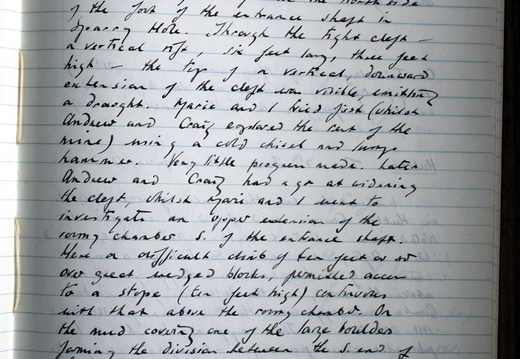 of the foot of the entrance shaft in
Sparry Hole. Through the tight cleft –
a vertical rift, six feet long, three feet
high – the top of a vertical, downward
extension of the cleft was visible, emitting
a draught. Marie and I tried first (whilst
Andrew and Craig explored the rest of the
mine) using a cold chisel and lump
hammer. Very little progress made. Later
Andrew and Craig had a go at widening
the cleft, whilst Marie and I went to
investigate an upper extension of the
roomy chamber S. of the entrance shaft.
Here a difficult climb of ten feet or so
over great wedged blocks, permitted access
to a stope (ten feet high) continuous
with that above the roomy chamber. On
the mud covering one of the large boulders
forming the division between the S. end of